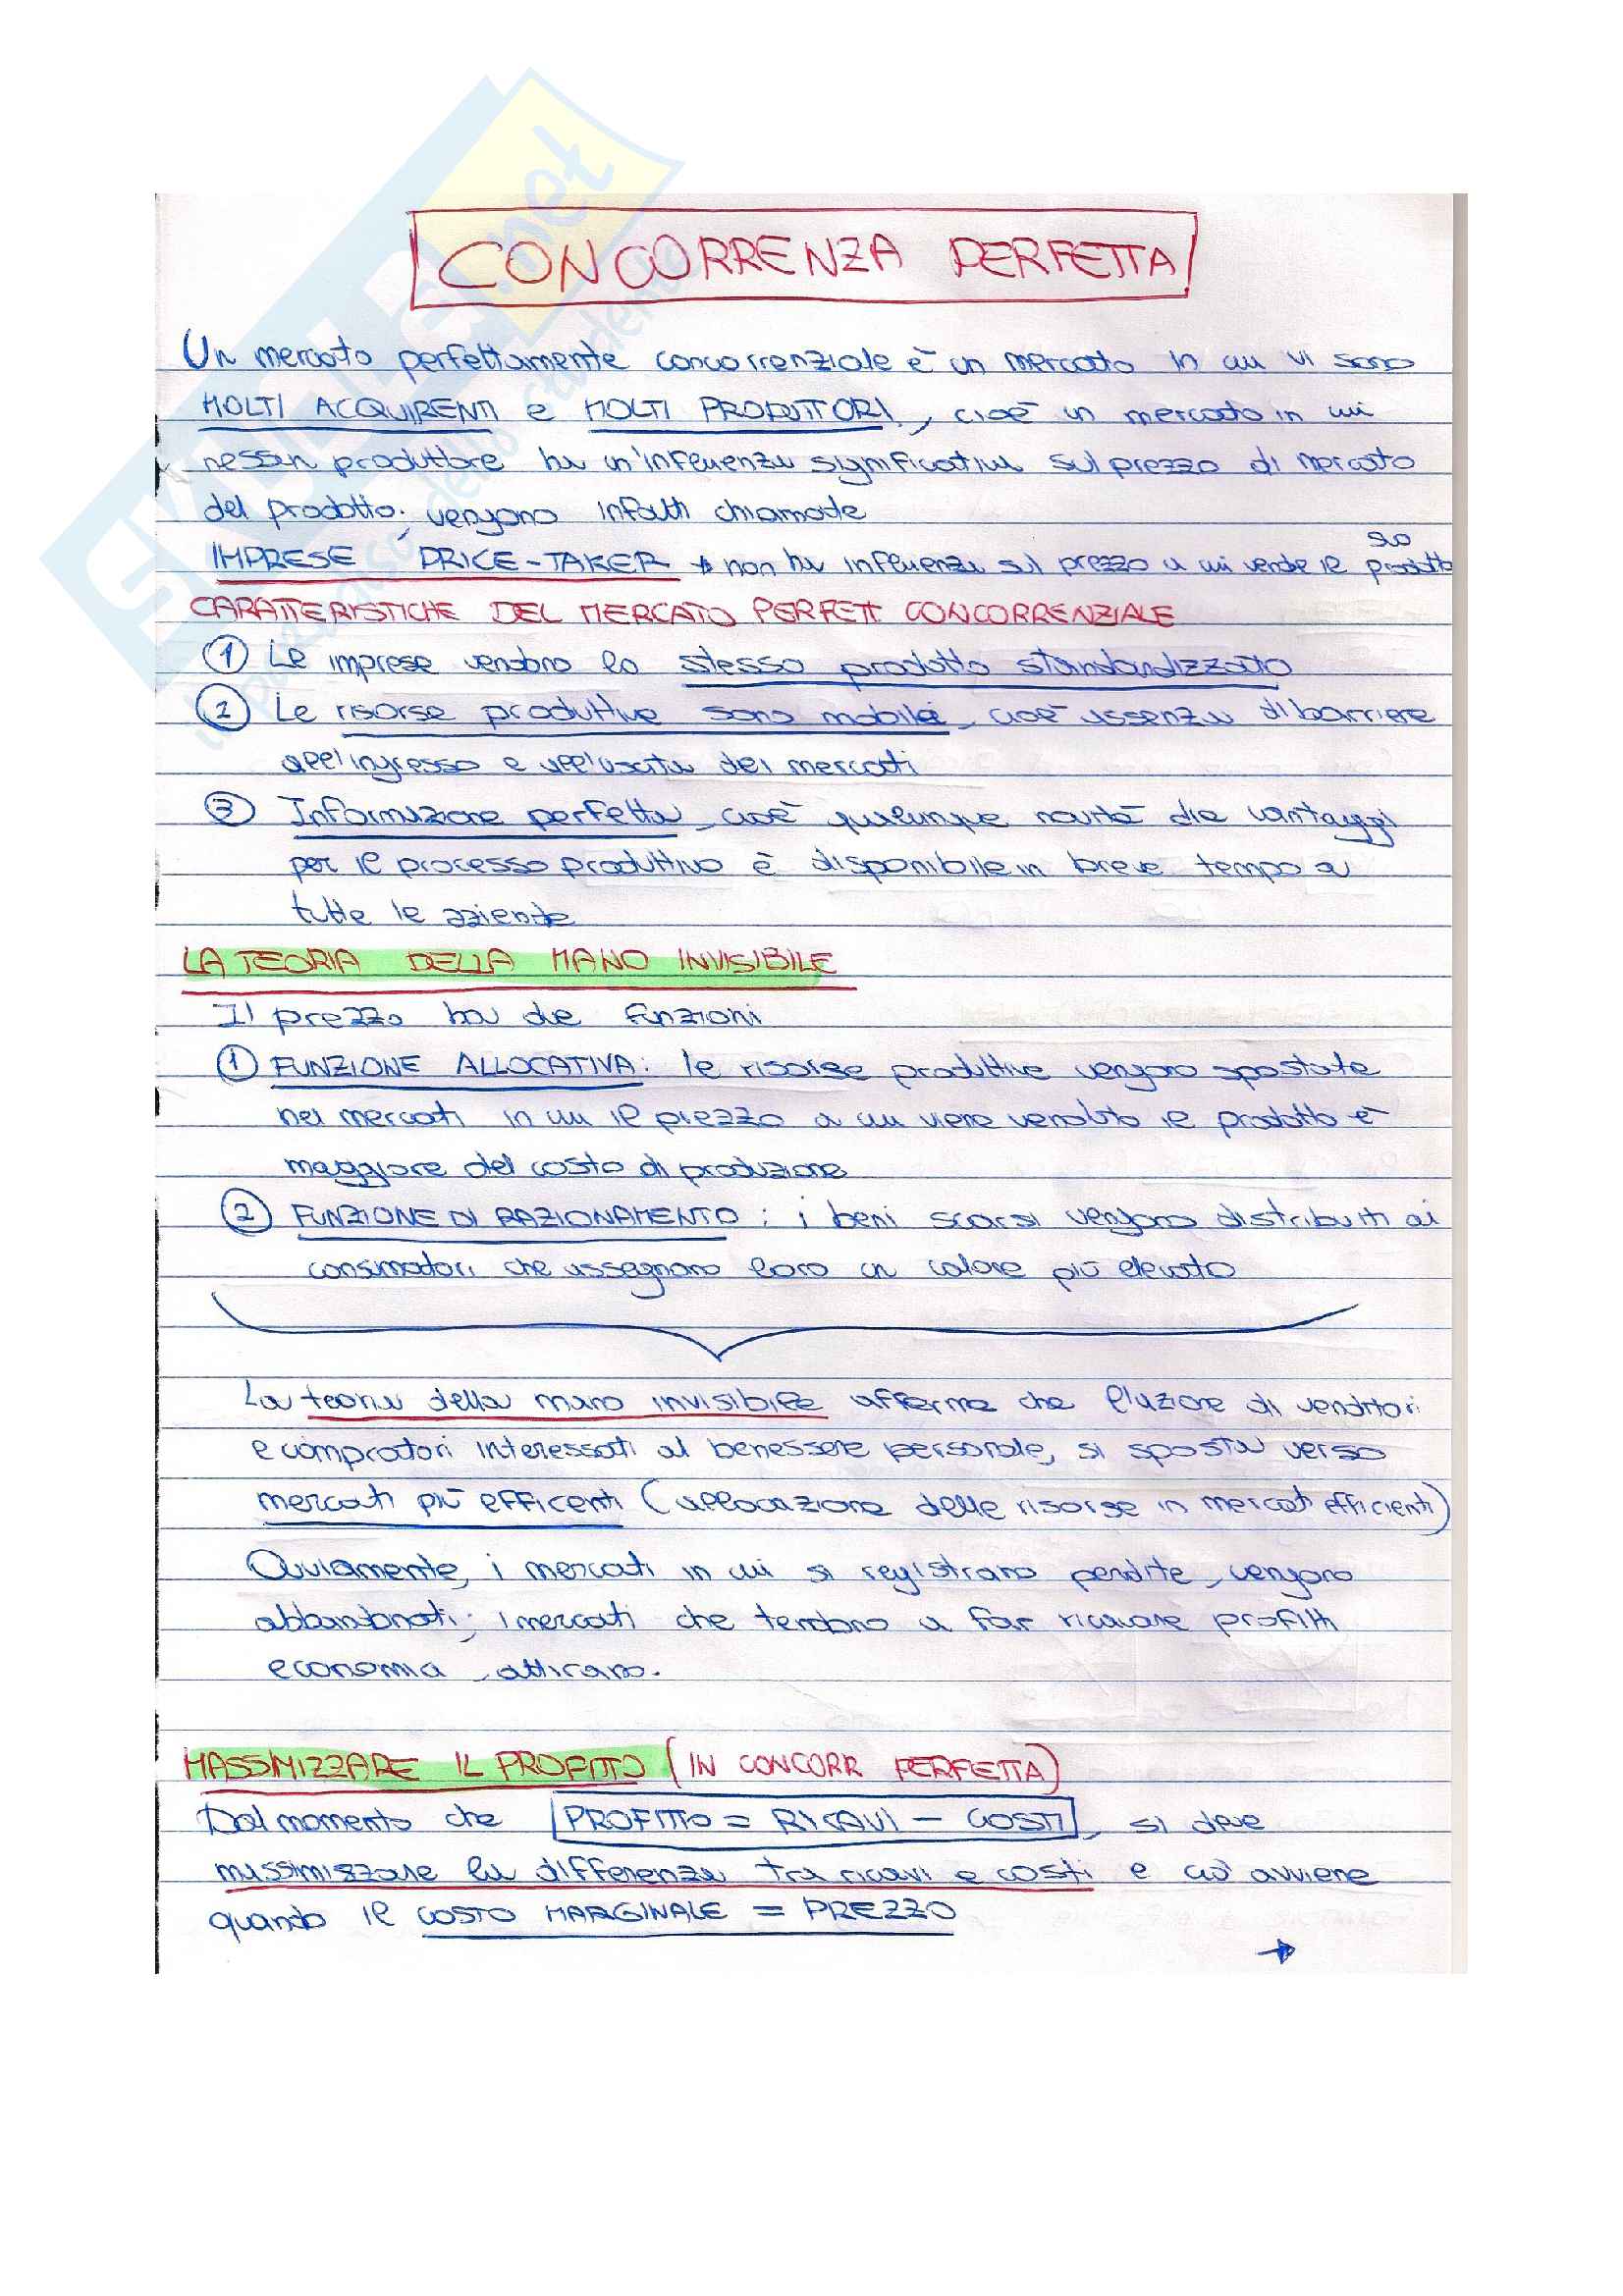 CONCORRENZA PERFETTA
Un mercato perfettamente concorrenziale è un mercato in cui vi sono
MOLTI ACQUIRENTI e MOLTI PRODUTTORI, cioè un mercato in cui
nessun produttore ha un'influenza significativa sul prezzo di mercato
del prodotto; vengono infatti chiamate
suo
IMPRESE PRICE-TAKER → non ha influenza sul prezzo a cui vende il prodotto
CARATTERISTICHE DEL MERCATO PERFETT CONCORRENZIALE
1 Le imprese vendono lo stesso prodotto standardizzato
2 Le risorse produttive sono mobili, cioè assenza di barriere
all'ingresso e all'uscita dei mercati
3 Informazione perfetta, cioè qualunque novità dia vantaggi
per il processo produttivo è disponibile in breve tempo a
tutte le aziende
LA TEORIA DELLA MANO INVISIBILE
Il prezzo ha due funzioni
1 FUNZIONE ALLOCATIVA: le risorse produttive vengono spostate
nei mercati in cui il prezzo a cui viene venduto il prodotto è
maggiore del costo di produzione
2 FUNZIONE DI RAZIONAMENTO: i beni scarsi vengono distribuiti ai
consumatori che assegnano loro un valore più elevato
La teoria della mano invisibile afferma che l'azione di venditori
e compratori interessati al benessere personale, si sposta verso
mercati più efficenti (allocazione delle risorse in mercati efficienti)
Ovviamente, i mercati in cui si registrano perdite, vengono
abbandonati; i mercati che tendono a far ricavare profitti
economici, attirano.
MASSIMIZZARE IL PROFITTO (IN CONCORR PERFETTA)
Dal momento che PROFITTO = RICAVI - COSTI, si deve
massimizzare la differenza tra ricavi e costi e ciò avviene
quando il COSTO MARGINALE = PREZZO
→